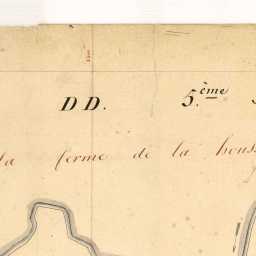 DD. 5.ème
la ferme de la houss